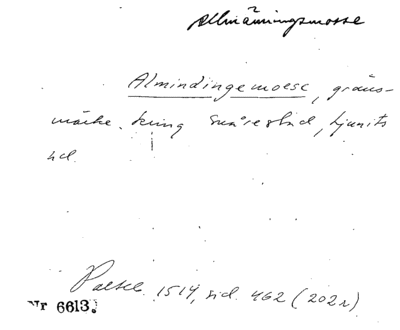 Allmänningsmosse
Almindingemoesc, gräns-
märke kring Snårestad, Ljunits
hd.
Palteb. 1514, sid. 462 (202 r)
Nr 6613.